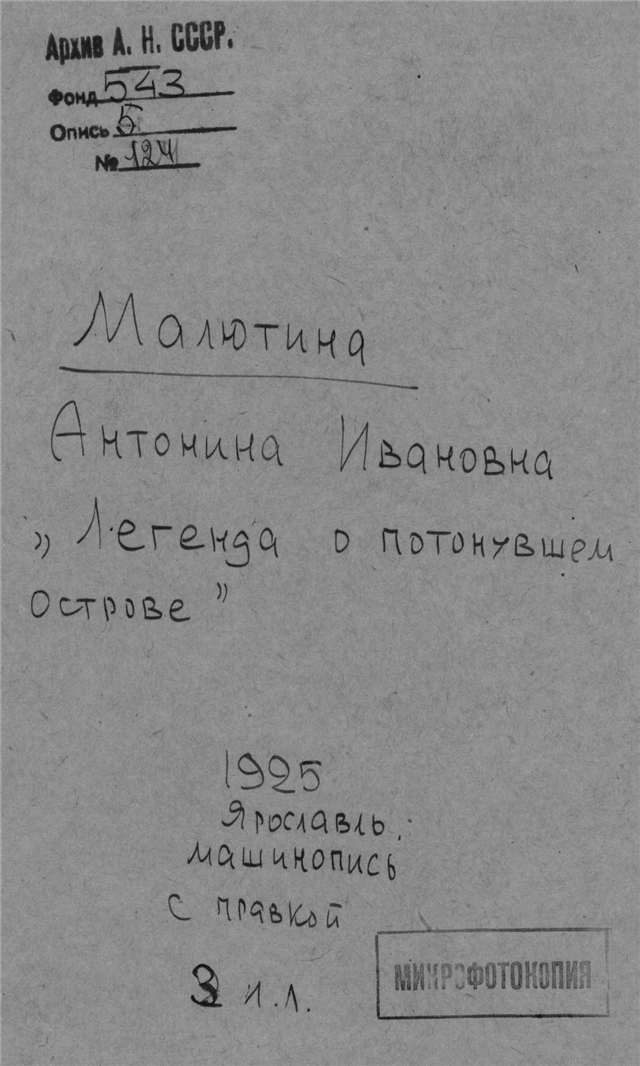 Архив А. Н. СССР.
Фонд 543
Опись 5
№ 124
Малютина
Антонина Ивановна
„Легенда о потонувшем
острове"
1925
Ярославль.
машинопись
с правкой
3 и.л.
МИКРОФОТОКОПИЯ